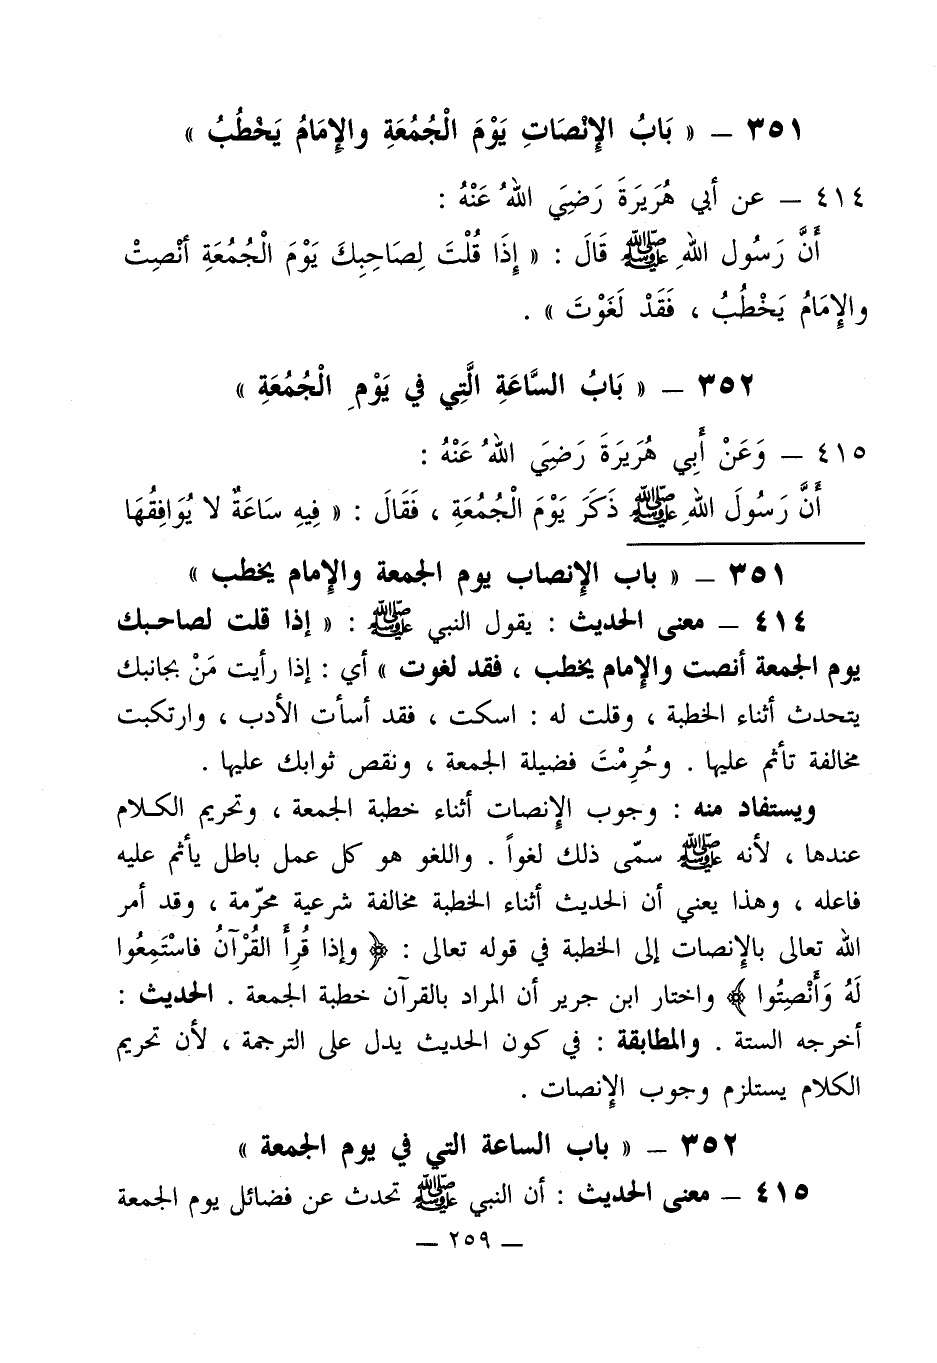 ٣٥١ – « بَابُ الإِنْصَاتِ يَوْمَ الْجُمُعَةِ والإِمَامُ يَخْطُبُ »
٤١٤ – عن أبي هُرَيرَةَ رَضِيَ اللهُ عَنْهُ :
أَنَّ رَسُول اللهِ ﷺ قَالَ : « إِذَا قُلْتَ لِصَاحِبِكَ يَوْمَ الْجُمُعَةِ أنْصِتْ
والإِمَامُ يَخْطُبُ ، فَقَدْ لَغَوْتَ » .
٣٥٢ – « بَابُ السَّاعَةِ الَّتِي في يَوْمِ الْجُمُعَةِ »
٤١٥ – وَعَنْ أَبِي هُرَيرَةَ رَضِيَ اللهُ عَنْهُ :
أَنَّ رَسُولَ اللهِ ﷺ ذَكَرَ يَوْمَ الْجُمُعَةِ ، فَقَالَ : « فِيهِ سَاعَةٌ لا يُوَافِقُهَا
٣٥١ – « باب الإِنصاب يوم الجمعة والإِمام يخطب »
٤١٤ – معنى الحديث : يقول النبي ﷺ : « إذا قلت لصاحبك
يوم الجمعة أنصت والإِمام يخطب ، فقد لغوت » أي : إذا رأيت مَنْ بجانبك
يتحدث أثناء الخطبة ، وقلت له : اسكت ، فقد أسأت الأدب ، وارتكبت
مخالفة تأثم عليها . وحُرِمْتَ فضيلة الجمعة ، ونقص ثوابك عليها .
ويستفاد منه : وجوب الإِنصات أثناء خطبة الجمعة ، وتحريم الكلام
عندها ، لأنه ﷺ سمّى ذلك لغواً . واللغو هو كل عمل باطل يأثم عليه
فاعله ، وهذا يعني أن الحديث أثناء الخطبة مخالفة شرعية محرّمة ، وقد أمر
الله تعالى بالإِنصات إلى الخطبة في قوله تعالى : ﴿ وإذا قُرِأَ القُرْآنُ فاسْتَمِعُوا
لَهُ وَأَنْصِتُوا ﴾ واختار ابن جرير أن المراد بالقرآن خطبة الجمعة . الحديث :
أخرجه الستة . والمطابقة : في كون الحديث يدل على الترجمة ، لأن تحريم
الكلام يستلزم وجوب الإِنصات .
٣٥٢ – « باب الساعة التي في يوم الجمعة »
٤١٥ – معنى الحديث : أن النبي ﷺ تحدث عن فضائل يوم الجمعة
– ٢٥٩ –